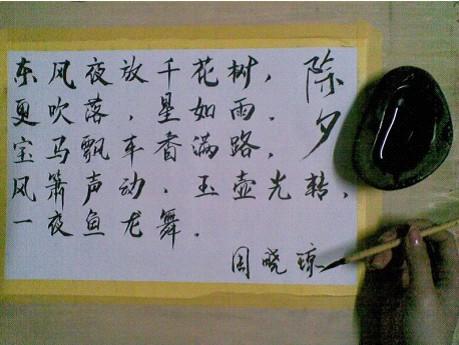 除夕
东风夜放千花树，
更吹落，星如雨．
宝马飘车香满路，
风箫声动．玉壶光转，
一夜鱼龙舞．
周晓琼